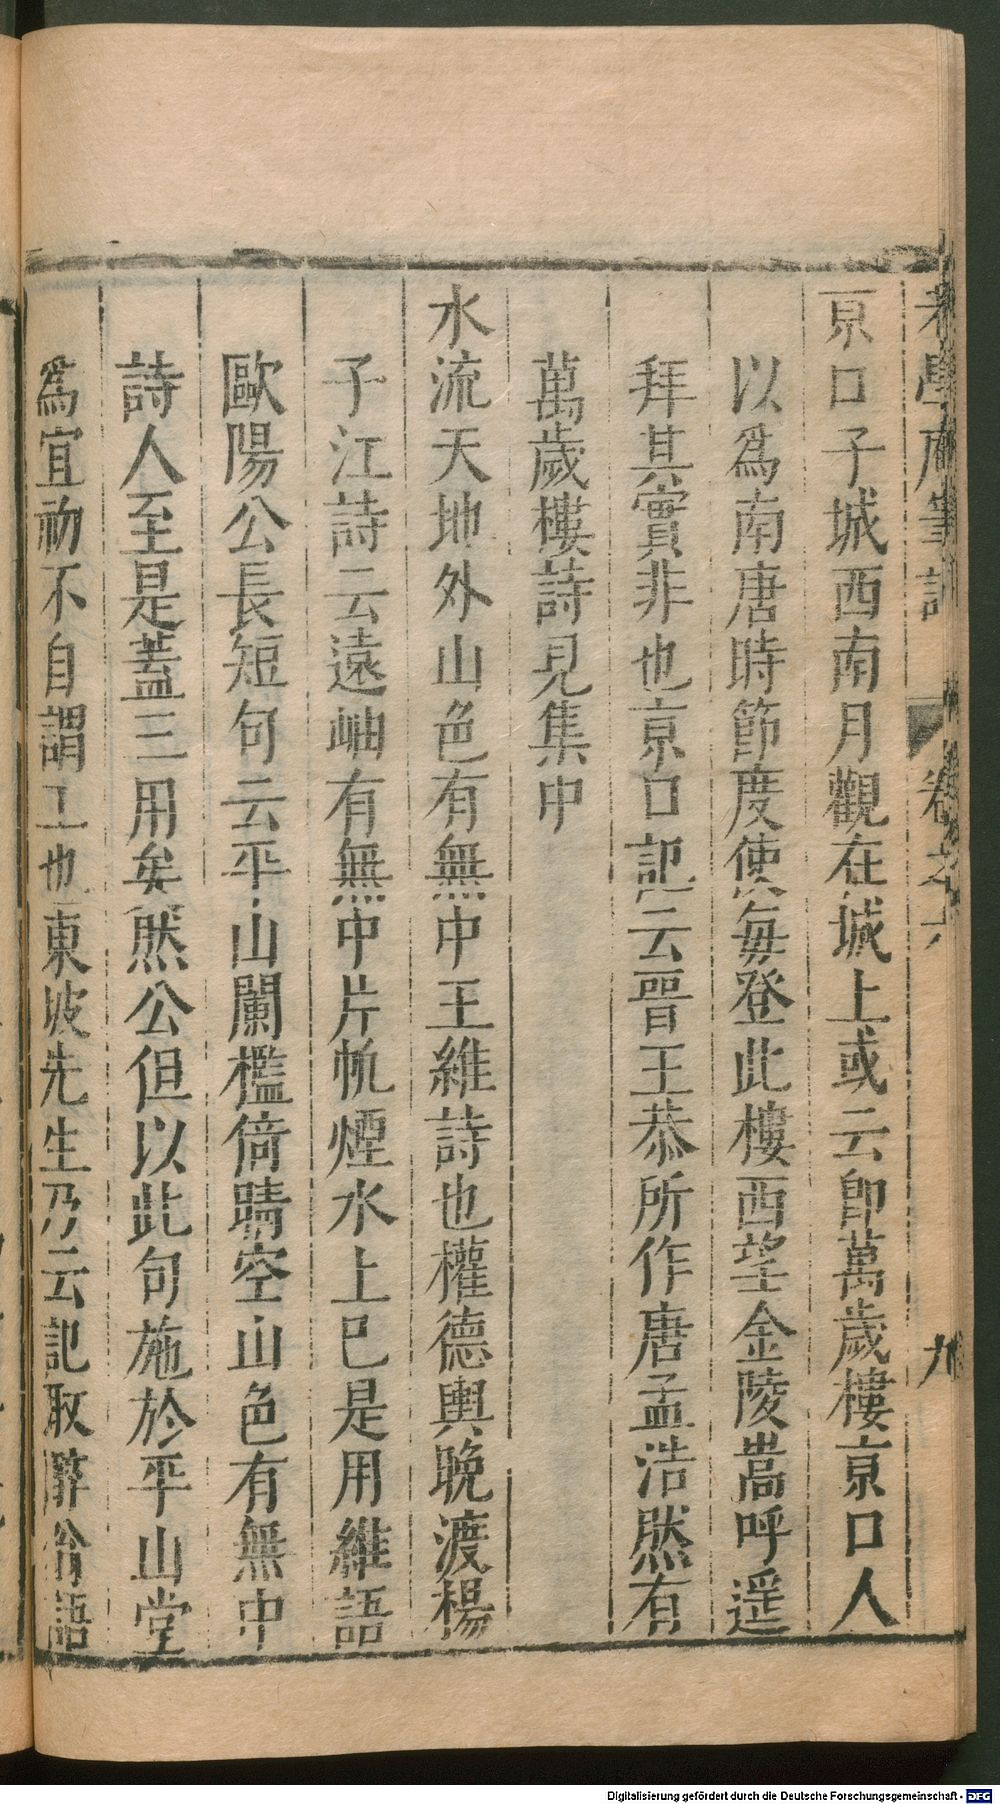 老學庵筆記 卷之六 九
京口子城西南月觀在城上或云卽萬歲樓京口人
以爲南唐時節度使每登此樓西望金陵嵩呼遥
拜其實非也京口記云晉王恭所作唐孟浩然有
萬歲樓詩見集中
水流天地外山色有無中王維詩也權德輿晚渡楊
子江詩云遠岫有無中片帆煙水上已是用維語
歐陽公長短句云平山闌檻倚晴空山色有無中
詩人至是蓋三用矣然公但以此句施於平山堂
爲宜初不自謂工也東坡先生乃云記取醉翁語
Digitalisierung gefördert durch die Deutsche Forschungsgemeinschaft - DFG